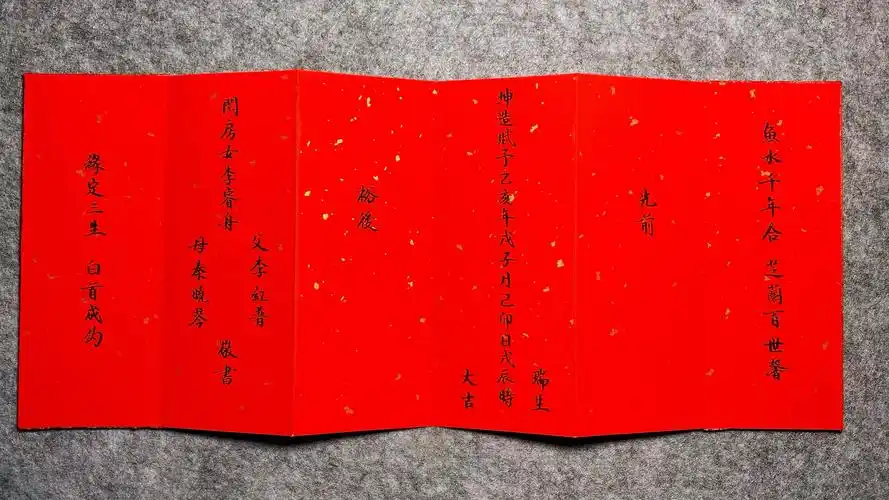 魚水千年合 芝蘭百世馨
光前
瑞生
坤造賦予乙亥年戊子月己卯日戊辰時
大吉
裕後
父李紅普
閆房女李睿丹
敬書
母秦曉琴
緣定三生 白首成約